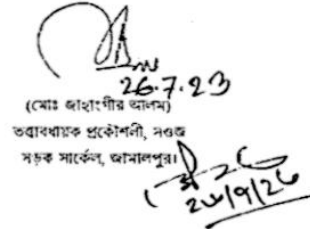 26.7.23
(মোঃ জাহাংগীর আলম)
তত্ত্বাবধায়ক প্রকৌশলী, সওজ
সড়ক সার্কেল, জামালপুর।